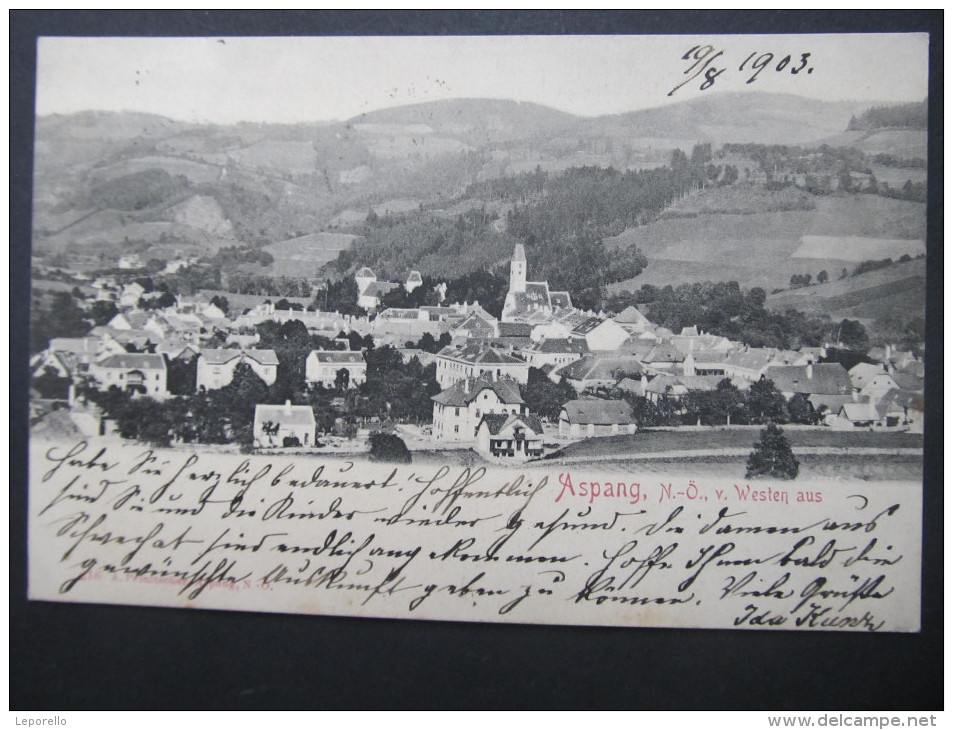 10/8 1903.
Aspang, N.-Ö., v. Westen aus
Habe Sie herzlich bedauert! Hoffentlich
sind Sie und die Kinder wieder gesund. Die Damen aus
Schwechat sind endlich angekommen. Hoffe Ihnen bald die
gewünschte Auskunft geben zu können. Viele Grüße
Ida Kunz
Aspang, N.-Ö.
Leporello
www.delcampe.net